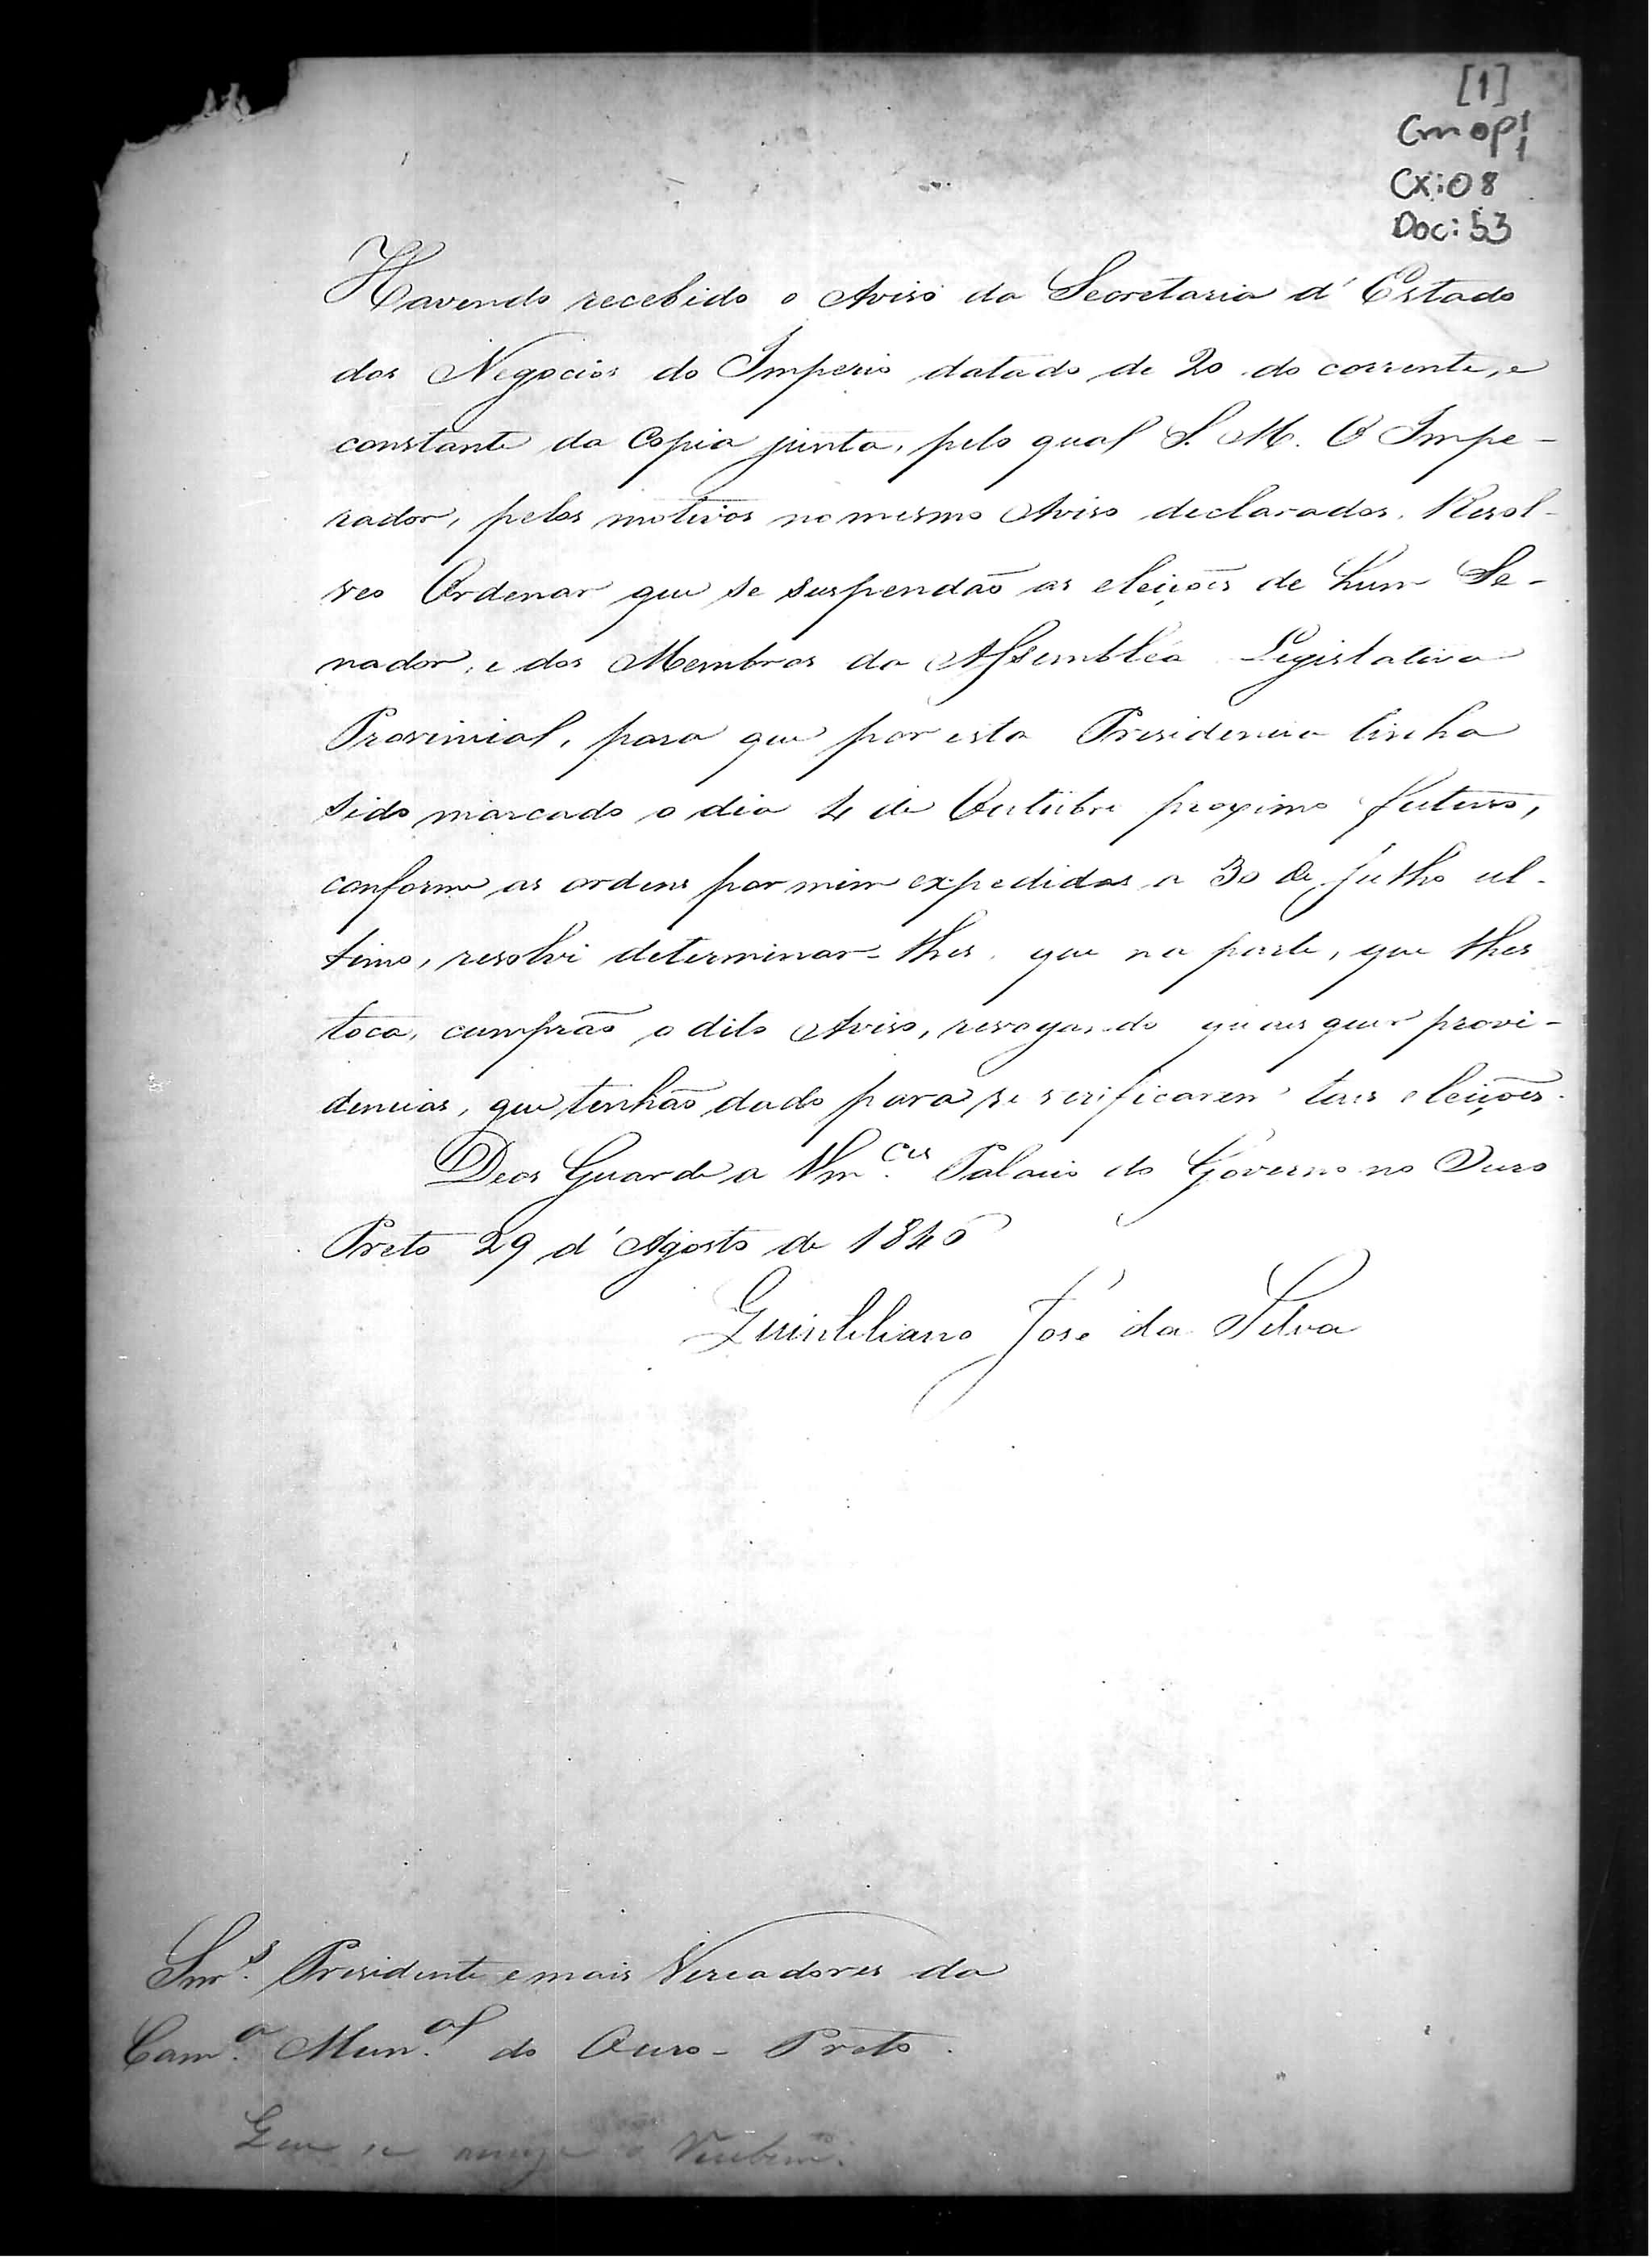 [1]
Cmop
Cx: 08
Doc: 53
Havendo recebido o Aviso da Secretaria d'Estado
dos Negocios do Imperio datado de 20 do corrente, e
constante da Copia junta, pelo qual S. M. O Impe-
rador, pelos motivos no mesmo Aviso declarados, Resol-
veo Ordenar que se suspendão as eleições de hum Se-
nador, e dos Membros da Assembléa Legislativa
Provincial, para que por esta Presidencia tinha
sido marcado o dia 4 de Outubro proximo futuro,
conforme as ordens por mim expedidas a 30 de Julho ul-
timo, resolvi determinar-lhes que na parte, que lhes
toca, cumprão o dito Aviso, revogando quaesquer provi-
dencias, que tenhão dado para se verificarem taes eleições.
Deos Guarde a Vm.ces Palacio do Governo no Ouro
Preto 29 d'Agosto de 1846
Quintiliano José da Silva
Snr.s Presidente e mais Vereadores da
Cam.a Mun.al do Ouro-Preto.
Que se